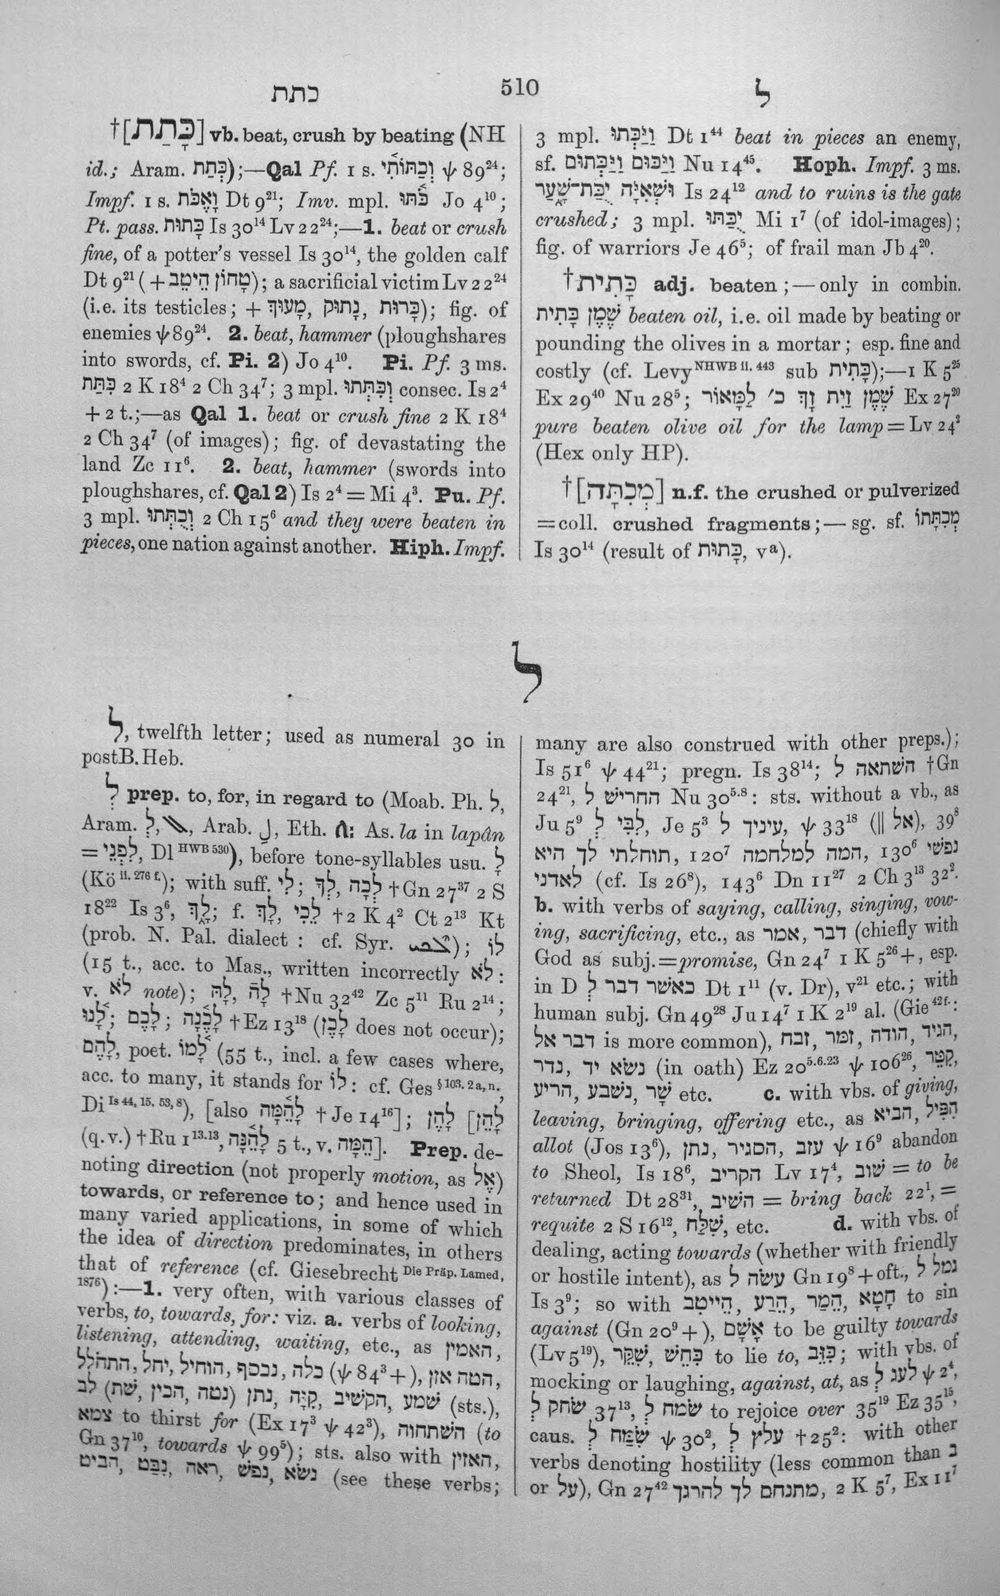 כתת
510
ל
†[כָּתַת] vb. beat, crush by beating (NH
id.; Aram. כְּתַת);—Qal Pf. 1 s. וְכַתּוֹתִי ψ 89²⁴;
Impf. 1 s. וָאֶכֹּת Dt 9²¹; Imv. mpl. כֹּתּוּ Jo 4¹⁰;
Pt. pass. כָּתוּת Is 30¹⁴ Lv 22²⁴;—1. beat or crush
fine, of a potter's vessel Is 30¹⁴, the golden calf
Dt 9²¹ (+ טָחוֹן הֵיטֵב); a sacrificial victim Lv 22²⁴
(i.e. its testicles; + מָעוּךְ, נָתוּק, כָּרוּת); fig. of
enemies ψ 89²⁴. 2. beat, hammer (ploughshares
into swords, cf. Pi. 2) Jo 4¹⁰. Pi. Pf. 3 ms.
כִּתַּת 2 K 18⁴ 2 Ch 34⁷; 3 mpl. וְכִתְּתוּ consec. Is 2⁴
+ 2 t.;—as Qal 1. beat or crush fine 2 K 18⁴
2 Ch 34⁷ (of images); fig. of devastating the
land Zc 11⁶. 2. beat, hammer (swords into
ploughshares, cf. Qal 2) Is 2⁴ = Mi 4³. Pu. Pf.
3 mpl. וְכֻתְּתוּ 2 Ch 15⁶ and they were beaten in
pieces, one nation against another. Hiph. Impf.
3 mpl. וַיַּכְּתוּ Dt 1⁴⁴ beat in pieces an enemy,
sf. וַיַּכּוּם וַיַּכְּתוּם Nu 14⁴⁵. Hoph. Impf. 3 ms.
וּשְׁאִיָּה יֻכַּת־שָׁעַר Is 24¹² and to ruins is the gate
crushed; 3 mpl. יֻכַּתּוּ Mi 1⁷ (of idol-images);
fig. of warriors Je 46⁵; of frail man Jb 4²⁰.
†כָּתִית adj. beaten;—only in combin.
שֶׁמֶן כָּתִית beaten oil, i.e. oil made by beating or
pounding the olives in a mortar; esp. fine and
costly (cf. Levy NHWB ii. 443 sub כָּתִית);—1 K 5²⁵
Ex 29⁴⁰ Nu 28⁵; שֶׁמֶן זַיִת זָךְ כ׳ לַמָּאוֹר Ex 27²⁰
pure beaten olive oil for the lamp = Lv 24²
(Hex only HP).
†[מְכִתָּה] n.f. the crushed or pulverized
=coll. crushed fragments;—sg. sf. מְכִתָּתוֹ
Is 30¹⁴ (result of כָּתוּת, vª).
ל
ל, twelfth letter; used as numeral 30 in
postB. Heb.
לְ prep. to, for, in regard to (Moab. Ph. ל,
Aram. לְ, ܠ, Arab. ل, Eth. ለ: As. la in lapân
= לִפְנֵי, Dl HWB 530), before tone-syllables usu. לָ
(Kö ii. 276 f.); with suff. לִי; לְךָ, לְכָה †Gn 27³⁷ 2 S
18²² Is 3⁶, לָךְ; f. לָךְ, לָכִי †2 K 4² Ct 2¹³ Kt
(prob. N. Pal. dialect: cf. Syr. ܠܟܝ); לוֹ
(15 t., acc. to Mas., written incorrectly לֹא:
v. לֹא note); לָהּ, לָהֿ †Nu 32⁴² Zc 5¹¹ Ru 2¹⁴;
לָנוּ; לָכֶם; לָכֶנָה †Ez 13¹⁸ (לָכֶן does not occur);
לָהֶם, poet. לָמוֹ (55 t., incl. a few cases where,
acc. to many, it stands for לוֹ: cf. Ges § 103. 2 a, n.,
Di Is 44, 15. 53, 8), [also לָהֵמָּה † Je 14¹⁶]; לָהֶן [לָהֵן
(q.v.) † Ru 1¹³·¹³, לָהֵנָּה 5 t., v. הֵמָּה]. Prep. de-
noting direction (not properly motion, as אֶל)
towards, or reference to; and hence used in
many varied applications, in some of which
the idea of direction predominates, in others
that of reference (cf. Giesebrecht Die Präp. Lamed,
1876):—1. very often, with various classes of
verbs, to, towards, for: viz. a. verbs of looking,
listening, attending, waiting, etc., as האמין,
הטה אזן, כלה (ψ 84³+), נכסף, הוחיל, יחל, התהלל
שמע, הקשיב, קִוָּה, נתן (נטה, הכין, שׁת) לב (sts.),
צמא to thirst for (Ex 17³ ψ 42³), השתחוה (to
Gn 37¹⁰, towards ψ 99⁵); sts. also with האזין,
הביט, נבט, צפה, ראה, נפש, נשא (see these verbs;
many are also construed with other preps.);
Is 51⁶ ψ 44²¹; pregn. Is 38¹⁴; השתאה ל †Gn
24²¹, החריש ל Nu 30⁵·⁸: sts. without a vb., as
Ju 5⁹ לִבִּי לְ, Je 5³ עיניך ל, ψ 33¹⁸ (‖ אל), 39⁸
תוחלתי לך היא, 120⁷ המה למלחמה, 130⁶ נפשי
לאדני (cf. Is 26⁸), 143⁶ Dn 11²⁷ 2 Ch 3¹³ 32².
b. with verbs of saying, calling, singing, vow-
ing, sacrificing, etc., as אמר, דבר (chiefly with
God as subj.=promise, Gn 24⁷ 1 K 5²⁶+, esp.
in D כאשר דבר לְ Dt 1¹¹ (v. Dr), v²¹ etc.; with
human subj. Gn 49²⁸ Ju 14⁷ 1 K 2¹⁹ al. (Gie 42 f.:
דבר אל is more common), הגיד, הודה, זמר, זבח,
נדר, נשא יד (in oath) Ez 20⁵·⁶·²³ ψ 106²⁶, קִטֵּר,
שָׁר, נשבע, הריע etc. c. with vbs. of giving,
leaving, bringing, offering etc., as הביא, הִפִּיל
allot (Jos 13⁶), עזב, הסגיר, נתן ψ 16⁹ abandon
to Sheol, Is 18⁶, הקריב Lv 17⁴, שׁוּב = to be
returned Dt 28³¹, הֵשִׁיב = bring back 22¹, =
requite 2 S 16¹², שִׁלַּח, etc. d. with vbs. of
dealing, acting towards (whether with friendly
or hostile intent), as עשׂה ל Gn 19⁸+oft., גמל ל
Is 3⁹; so with הֵיטִב, הֵרַע, הֵמַר, חָטָא to sin
against (Gn 20⁹+), אָשַׁם to be guilty towards
(Lv 5¹⁹), כִּחֵשׁ, שִׁקֵּר, כִּזֵּב to lie to; with vbs. of
mocking or laughing, against, at, as לעג לְ ψ 2⁴,
שׂחק לְ 37¹³, שׂמח לְ to rejoice over 35¹⁹ Ez 35¹⁵,
caus. שִׂמַּח לְ ψ 30², עלץ לְ †25²: with other
verbs denoting hostility (less common than ב
or על), Gn 27⁴² מתנחם לך להרגך, 2 K 5⁷, Ex 11⁷